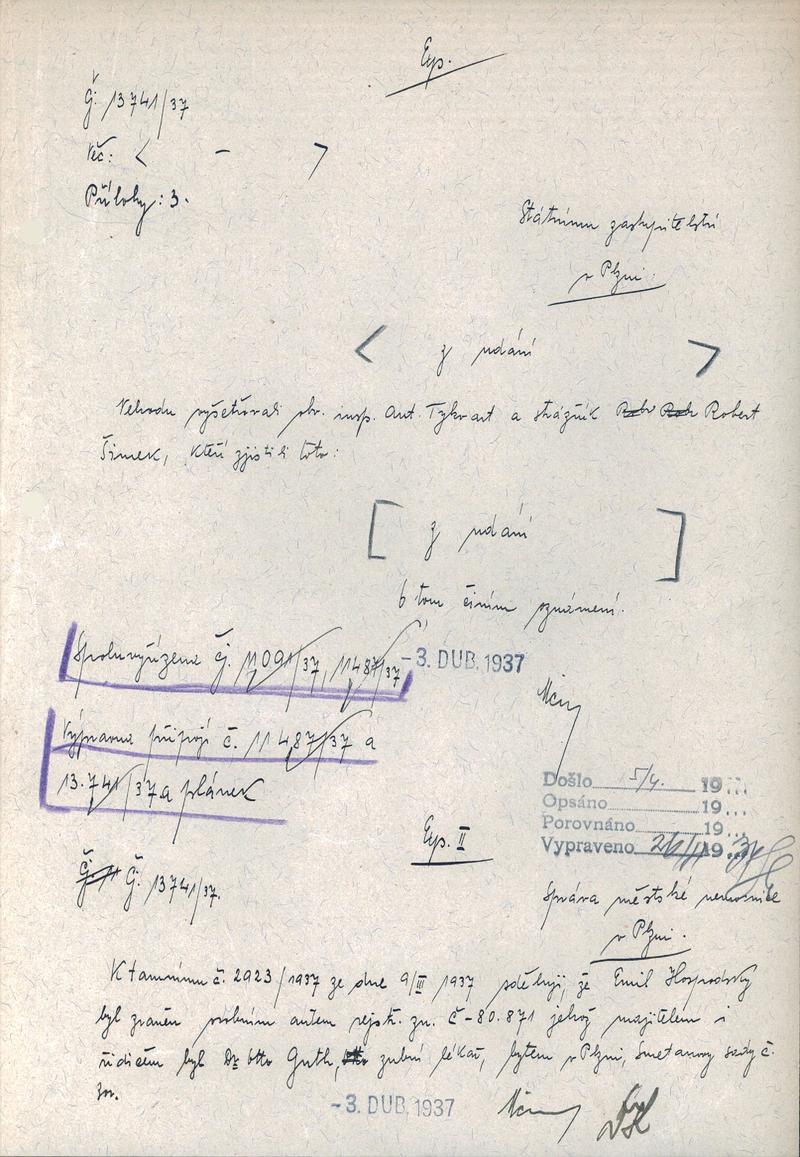 Exp.
Č: 13741/37
Věc: < — >
Přílohy: 3.
Státnímu zastupitelství
v Plzni.
< z udání >
Nehodu vyšetřovali obv. insp. Ant. Tykvart a strážník Robert
Šimek, kteří zjistili toto:
[ z udání ]
O tom činím oznámení.
Spoluvyřízena čj. 11091/37, 11487/37
-3. DUB. 1937
Výpravna připojí č. 11487/37 a
13.741/37 a plánek
Došlo 5/4. 19...
Opsáno 19...
Porovnáno 19...
Vypraveno 19...
Exp. II
Č: 13741/37.
Správa městské nemocnice
v Plzni.
K tamnímu č. 2923/1937 ze dne 9/III 1937 sděluji, že Emil Hospodský
byl zraněn osobním autem rejstř. zn. Č-80.871 jehož majitelem i
řidičem byl Dr Otto Guth, zubní lékař, bytem v Plzni, Smetanovy sady č.
-3. DUB. 1937